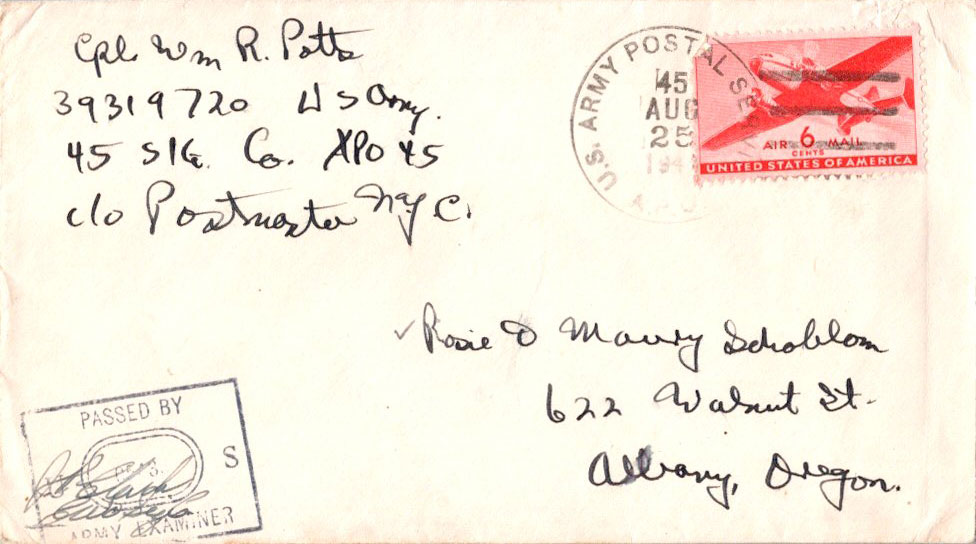 Cpl. Wm R. Potts
39319720 U S Army.
45 Sig. Co. APO 45
c/o Postmaster N.Y.C.
U.S. ARMY POSTAL SER
45
AUG
25
194
A.P.O
AIR 6 MAIL
CENTS
UNITED STATES OF AMERICA
Rosie & Maury Schoblom
622 Walnut St.
Albany, Oregon.
PASSED BY
S
ARMY EXAMINER